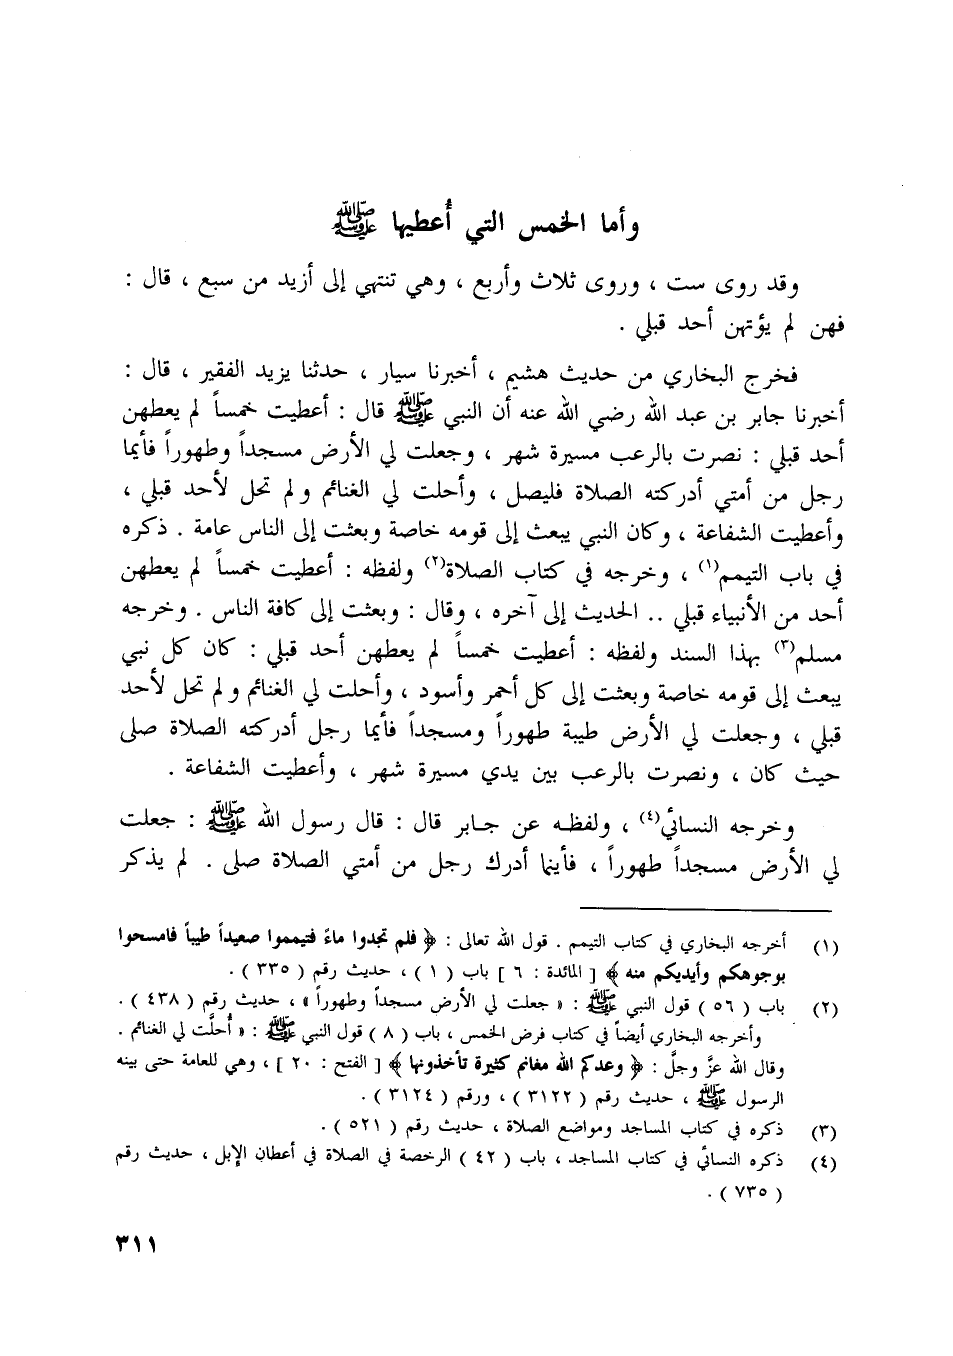 وأما الخمس التي أُعطيها ﷺ
وقد روى ست ، وروى ثلاث وأربع ، وهي تنتهي إلى أزيد من سبع ، قال :
فهن لم يؤتهن أحد قبلي .
فخرج البخاري من حديث هشيم ، أخبرنا سيار ، حدثنا يزيد الفقير ، قال :
أخبرنا جابر بن عبد الله رضي الله عنه أن النبي ﷺ قال : أعطيت خمساً لم يعطهن
أحد قبلي : نصرت بالرعب مسيرة شهر ، وجعلت لي الأرض مسجداً وطهوراً فأيما
رجل من أمتي أدركته الصلاة فليصل ، وأحلت لي الغنائم ولم تحل لأحد قبلي ،
وأعطيت الشفاعة ، وكان النبي يبعث إلى قومه خاصة وبعثت إلى الناس عامة . ذكره
في باب التيمم(١) ، وخرجه في كتاب الصلاة(٢) ولفظه : أعطيت خمساً لم يعطهن
أحد من الأنبياء قبلي .. الحديث إلى آخره ، وقال : وبعثت إلى كافة الناس . وخرجه
مسلم(٣) بهذا السند ولفظه : أعطيت خمساً لم يعطهن أحد قبلي : كان كل نبي
يبعث إلى قومه خاصة وبعثت إلى كل أحمر وأسود ، وأحلت لي الغنائم ولم تحل لأحد
قبلي ، وجعلت لي الأرض طيبة طهوراً ومسجداً فأيما رجل أدركته الصلاة صلى
حيث كان ، ونصرت بالرعب بين يدي مسيرة شهر ، وأعطيت الشفاعة .
وخرجه النسائي(٤) ، ولفظه عن جابر قال : قال رسول الله ﷺ : جعلت
لي الأرض مسجداً طهوراً ، فأينما أدرك رجل من أمتي الصلاة صلى . لم يذكر
(١) أخرجه البخاري في كتاب التيمم . قول الله تعالى : ﴿ فلم تجدوا ماءً فتيمموا صعيداً طيباً فامسحوا
بوجوهكم وأيديكم منه ﴾ [ المائدة : ٦ ] باب ( ١ ) ، حديث رقم ( ٣٣٥ ) .
(٢) باب ( ٥٦ ) قول النبي ﷺ : « جعلت لي الأرض مسجداً وطهوراً » ، حديث رقم ( ٤٣٨ ) .
وأخرجه البخاري أيضاً في كتاب فرض الخمس ، باب ( ٨ ) قول النبي ﷺ : « أُحلَّت لي الغنائم .
وقال الله عزَّ وجلَّ : ﴿ وعدكم الله مغانم كثيرة تأخذونها ﴾ [ الفتح : ٢٠ ] ، وهي للعامة حتى بينه
الرسول ﷺ ، حديث رقم ( ٣١٢٢ ) ، ورقم ( ٣١٢٤ ) .
(٣) ذكره في كتاب المساجد ومواضع الصلاة ، حديث رقم ( ٥٢١ ) .
(٤) ذكره النسائي في كتاب المساجد ، باب ( ٤٢ ) الرخصة في الصلاة في أعطان الإبل ، حديث رقم
( ٧٣٥ ) .
٣١١